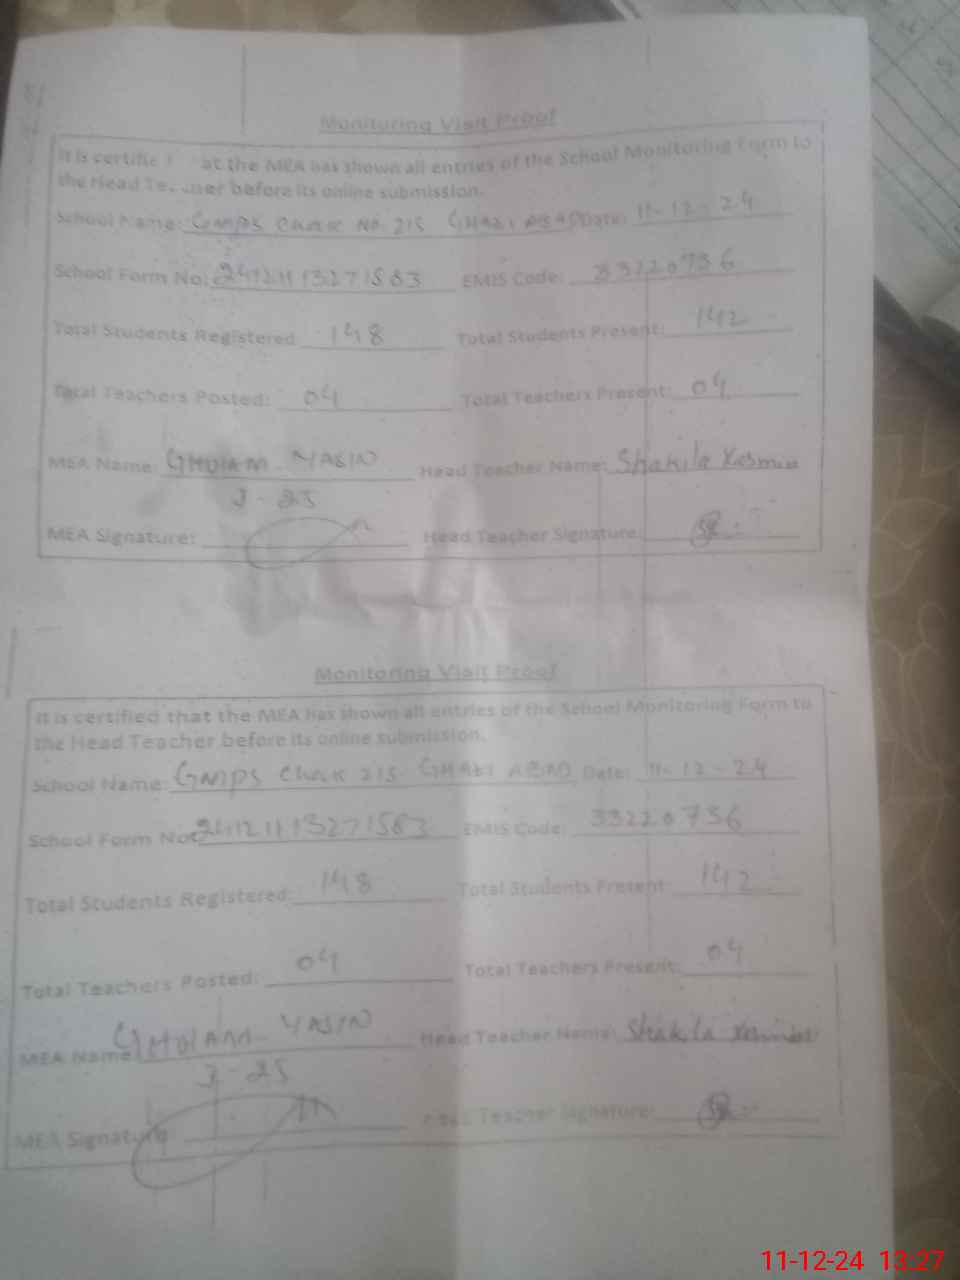 Monitoring Visit Proof
It is certifie at the MEA has shown all entries of the School Monitoring Form to
the Head Te her before its online submission.
School Name: GMPS Chak No. 215 GHAZI ABAD Date: 11-12-24
School Form No: 241211113271583 EMIS Code: 33220736
Total Students Registered 148 Total Students Present: 142
Total Teachers Posted: 04 Total Teachers Present: 04
MEA Name: GHULAM YASIN Head Teacher Name: Shakila Yasmin
J-25
MEA Signature: Head Teacher Signature:
Monitoring Visit Proof
It is certified that the MEA has shown all entries of the School Monitoring Form to
the Head Teacher before its online submission.
School Name: GMPS Chak 215 GHAZI ABAD Date: 11-12-24
School Form No: 241211113271583 EMIS Code: 33220736
Total Students Registered: 148 Total Students Present: 142
Total Teachers Posted: 04 Total Teachers Present: 04
MEA Name: GHULAM YASIN Head Teacher Name: Shakila
J-25
MEA Signature: Head Teacher Signature:
11-12-24 13:27